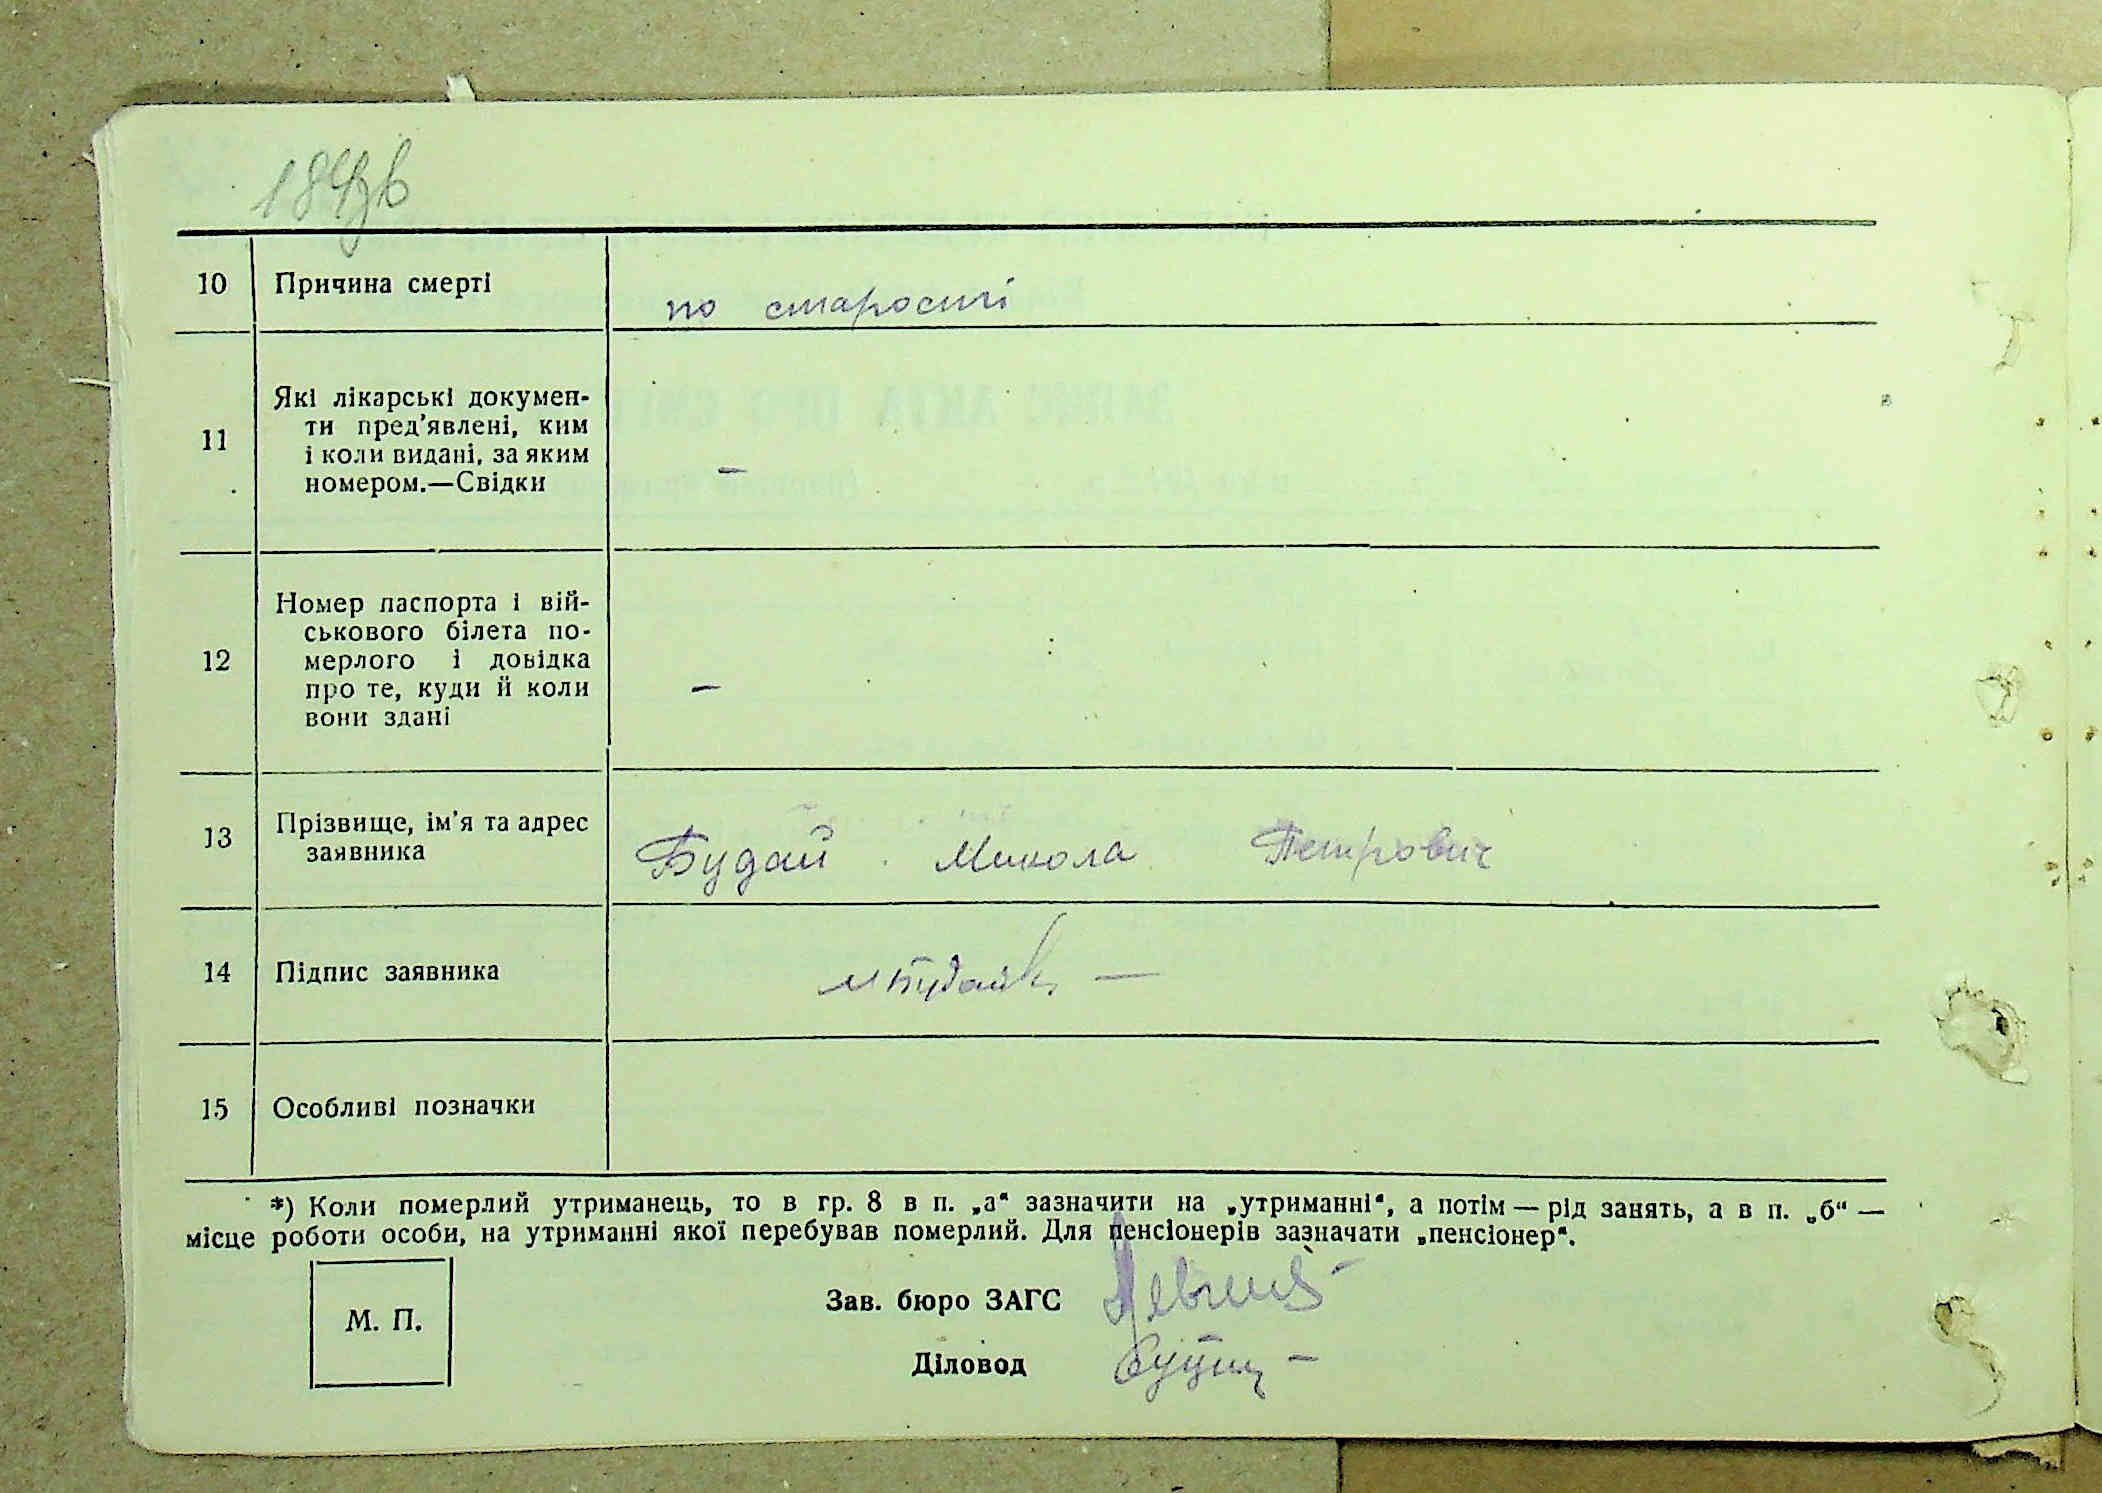 184зв
10 Причина смерті по старості
11 Які лікарські документи пред'явлені, ким
і коли видані, за яким
номером.—Свідки –
12 Номер паспорта і вій-
ськового білета по-
мерлого і довідка
про те, куди й коли
вони здані –
13 Прізвище, ім'я та адрес
заявника Будай Микола Петрович
14 Підпис заявника МБудай —
15 Особливі позначки
*) Коли померлий утриманець, то в гр. 8 в п. „а“ зазначити на „утриманні“, а потім — рід занять, а в п. „б“ —
місце роботи особи, на утриманні якої перебував померлий. Для пенсіонерів зазначати „пенсіонер“.
М. П.
Зав. бюро ЗАГС
Діловод